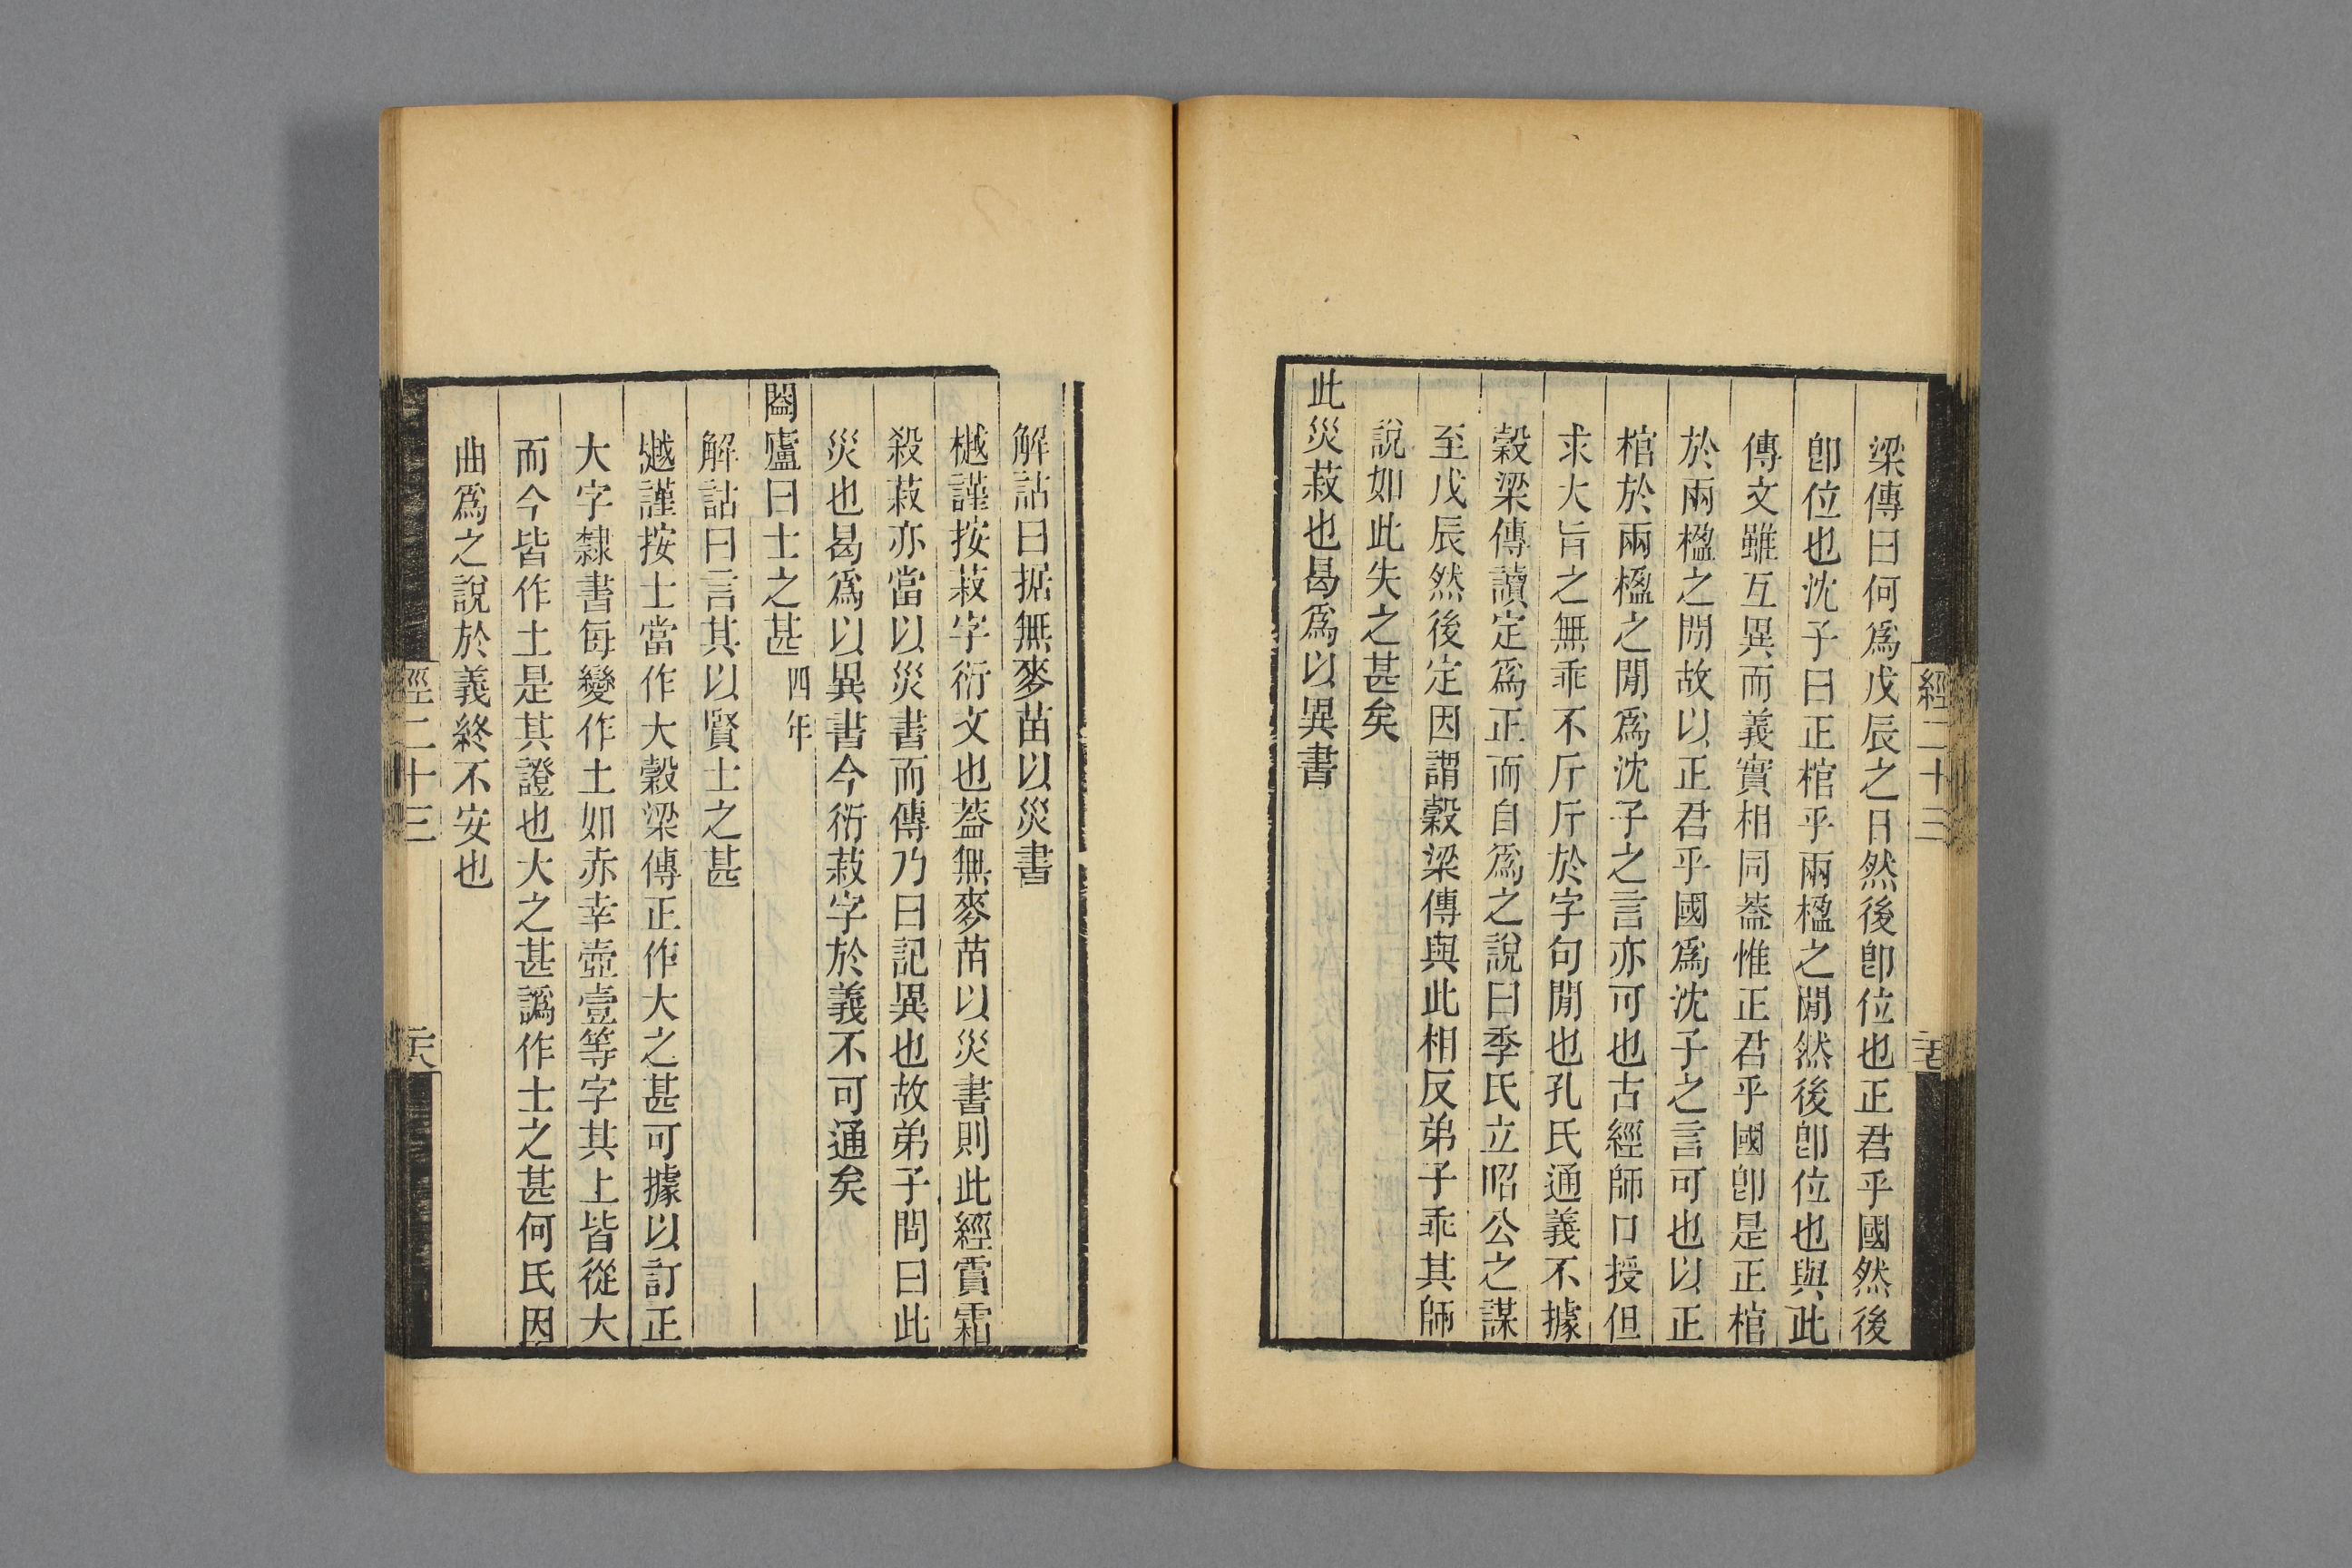 梁傳曰何爲戊辰之日然後卽位也正君乎國然後
卽位也沈子曰正棺乎兩楹之閒然後卽位也與此
傳文雖互異而義實相同葢惟正君乎國卽是正棺
於兩楹之閒故以正君乎國爲沈子之言可也以正
棺於兩楹之閒爲沈子之言亦可也古經師口授但
求大旨之無乖不斤斤於字句閒也孔氏通義不據
穀梁傳讀定爲正而自爲之說曰季氏立昭公之謀
至戊辰然後定因謂穀梁傳與此相反弟子乖其師
說如此失之甚矣
此災菽也曷爲以異書
經二十三
解詁曰据無麥苗以災書
樾謹按菽字衍文也葢無麥苗以災書則此經賈霜
殺菽亦當以災書而傳乃曰記異也故弟子問曰此
災也曷爲以異書今衍菽字於義不可通矣
闔廬曰士之甚四年
解詁曰言其以賢士之甚
樾謹按士當作大穀梁傳正作大之甚可據以訂正
大字隸書每變作土如赤幸壺壹等字其上皆從大
而今皆作土是其證也大之甚譌作士之甚何氏因
曲爲之說於義終不安也
經二十三